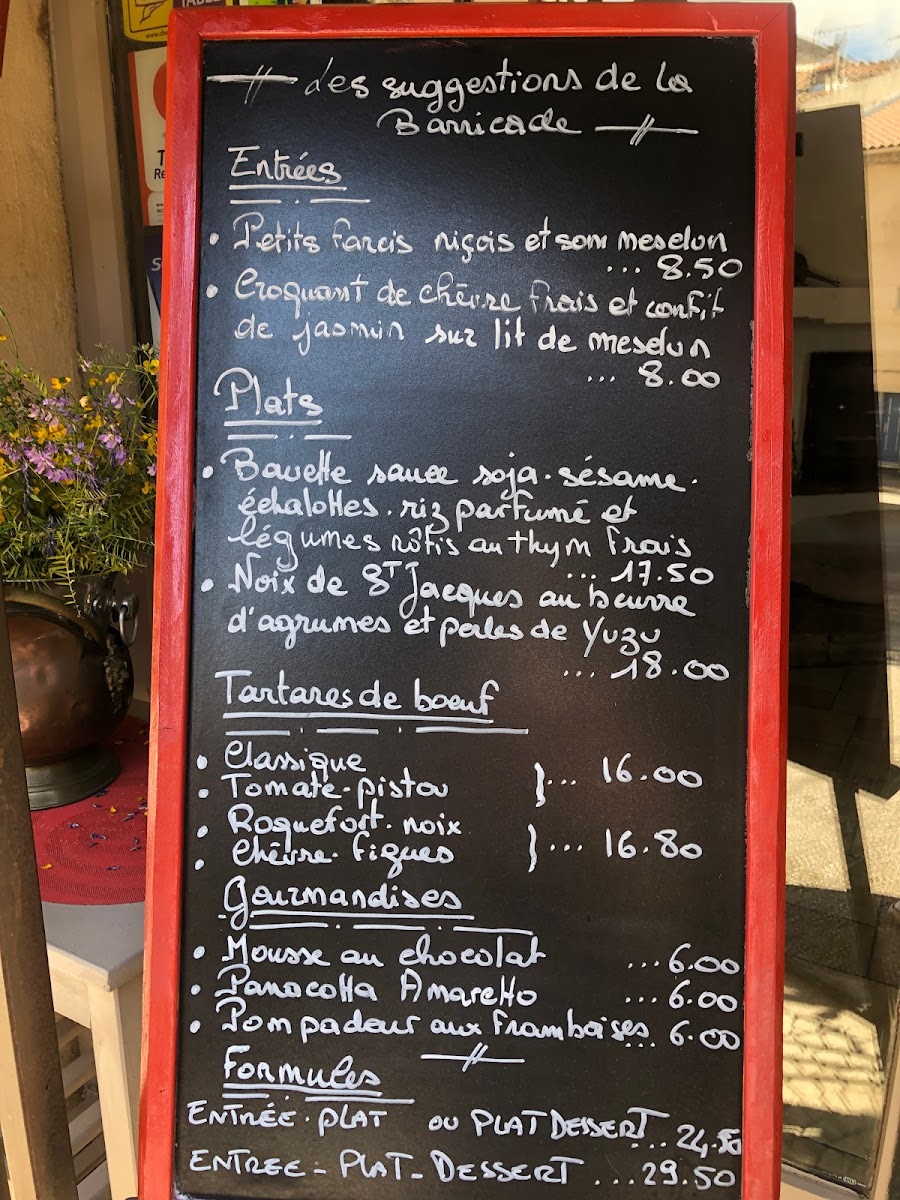 des suggestions de la
Barricade
Entrées
• Petits farcis niçois et son mesclun
... 8.50
• Croquant de chêvre frais et confit
de jasmin sur lit de mesclun
... 8.00
Plats
• Bavette sauce soja. sésame.
échalottes. riz parfumé et
légumes rôtis au thym frais
... 17.50
• Noix de ST Jacques au beurre
d'agrumes et perles de Yuzu
... 18.00
Tartares de boeuf
• Classique
• Tomate-pistou }... 16.00
• Roquefort. noix
• Chêvre. figues }... 16.80
Gourmandises
• Mousse au chocolat ...6.00
• Panacotta Amaretto ...6.00
• Pompadour aux framboises ... 6.00
Formules
ENTRÉE. PLAT OU PLAT DESSERT... 24.50
ENTREE - PLAT - DESSERT ...29.50